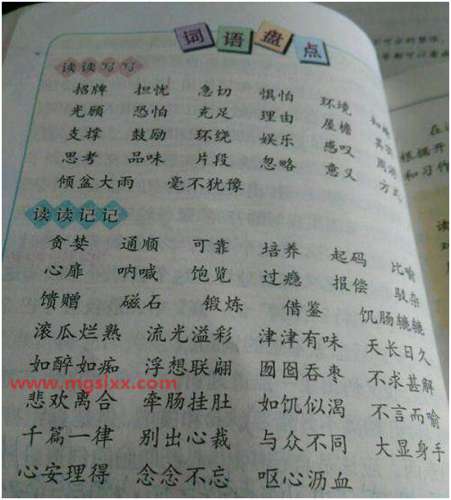 词语盘点
读读写写
招牌 担忧 急切 惧怕 环境
光顾 恐怕 充足 理由 屋檐
支撑 鼓励 环绕 娱乐 感叹
思考 品味 片段 忽略 意义 方式
倾盆大雨 毫不犹豫
读读记记
贪婪 通顺 可靠 培养 起码 比喻
心扉 呐喊 饱览 过瘾 报偿 驳杂
馈赠 磁石 锻炼 借鉴 饥肠辘辘
滚瓜烂熟 流光溢彩 津津有味 天长日久
如醉如痴 浮想联翩 囫囵吞枣 不求甚解
www.mgslxx.com
悲欢离合 牵肠挂肚 如饥似渴 不言而喻
千篇一律 别出心裁 与众不同 大显身手
心安理得 念念不忘 呕心沥血